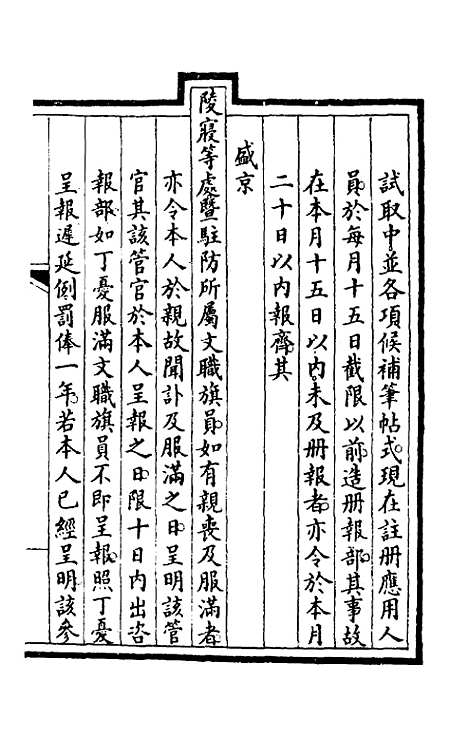 試取中並各項候補筆帖式現在註冊應用人
員於每月十五日截限以前造冊報部其事故
在本月十五日以內未及冊報者亦令於本月
二十日以內報齊其
盛京
陵寢等處暨駐防所屬文職旗員如有親喪及服滿者
亦令本人於親故聞訃及服滿之日呈明該管
官其該管官於本人呈報之日限十日內出咨
報部如丁憂服滿文職旗員不即呈報照丁憂
呈報遲延例罰俸一年若本人已經呈明該參